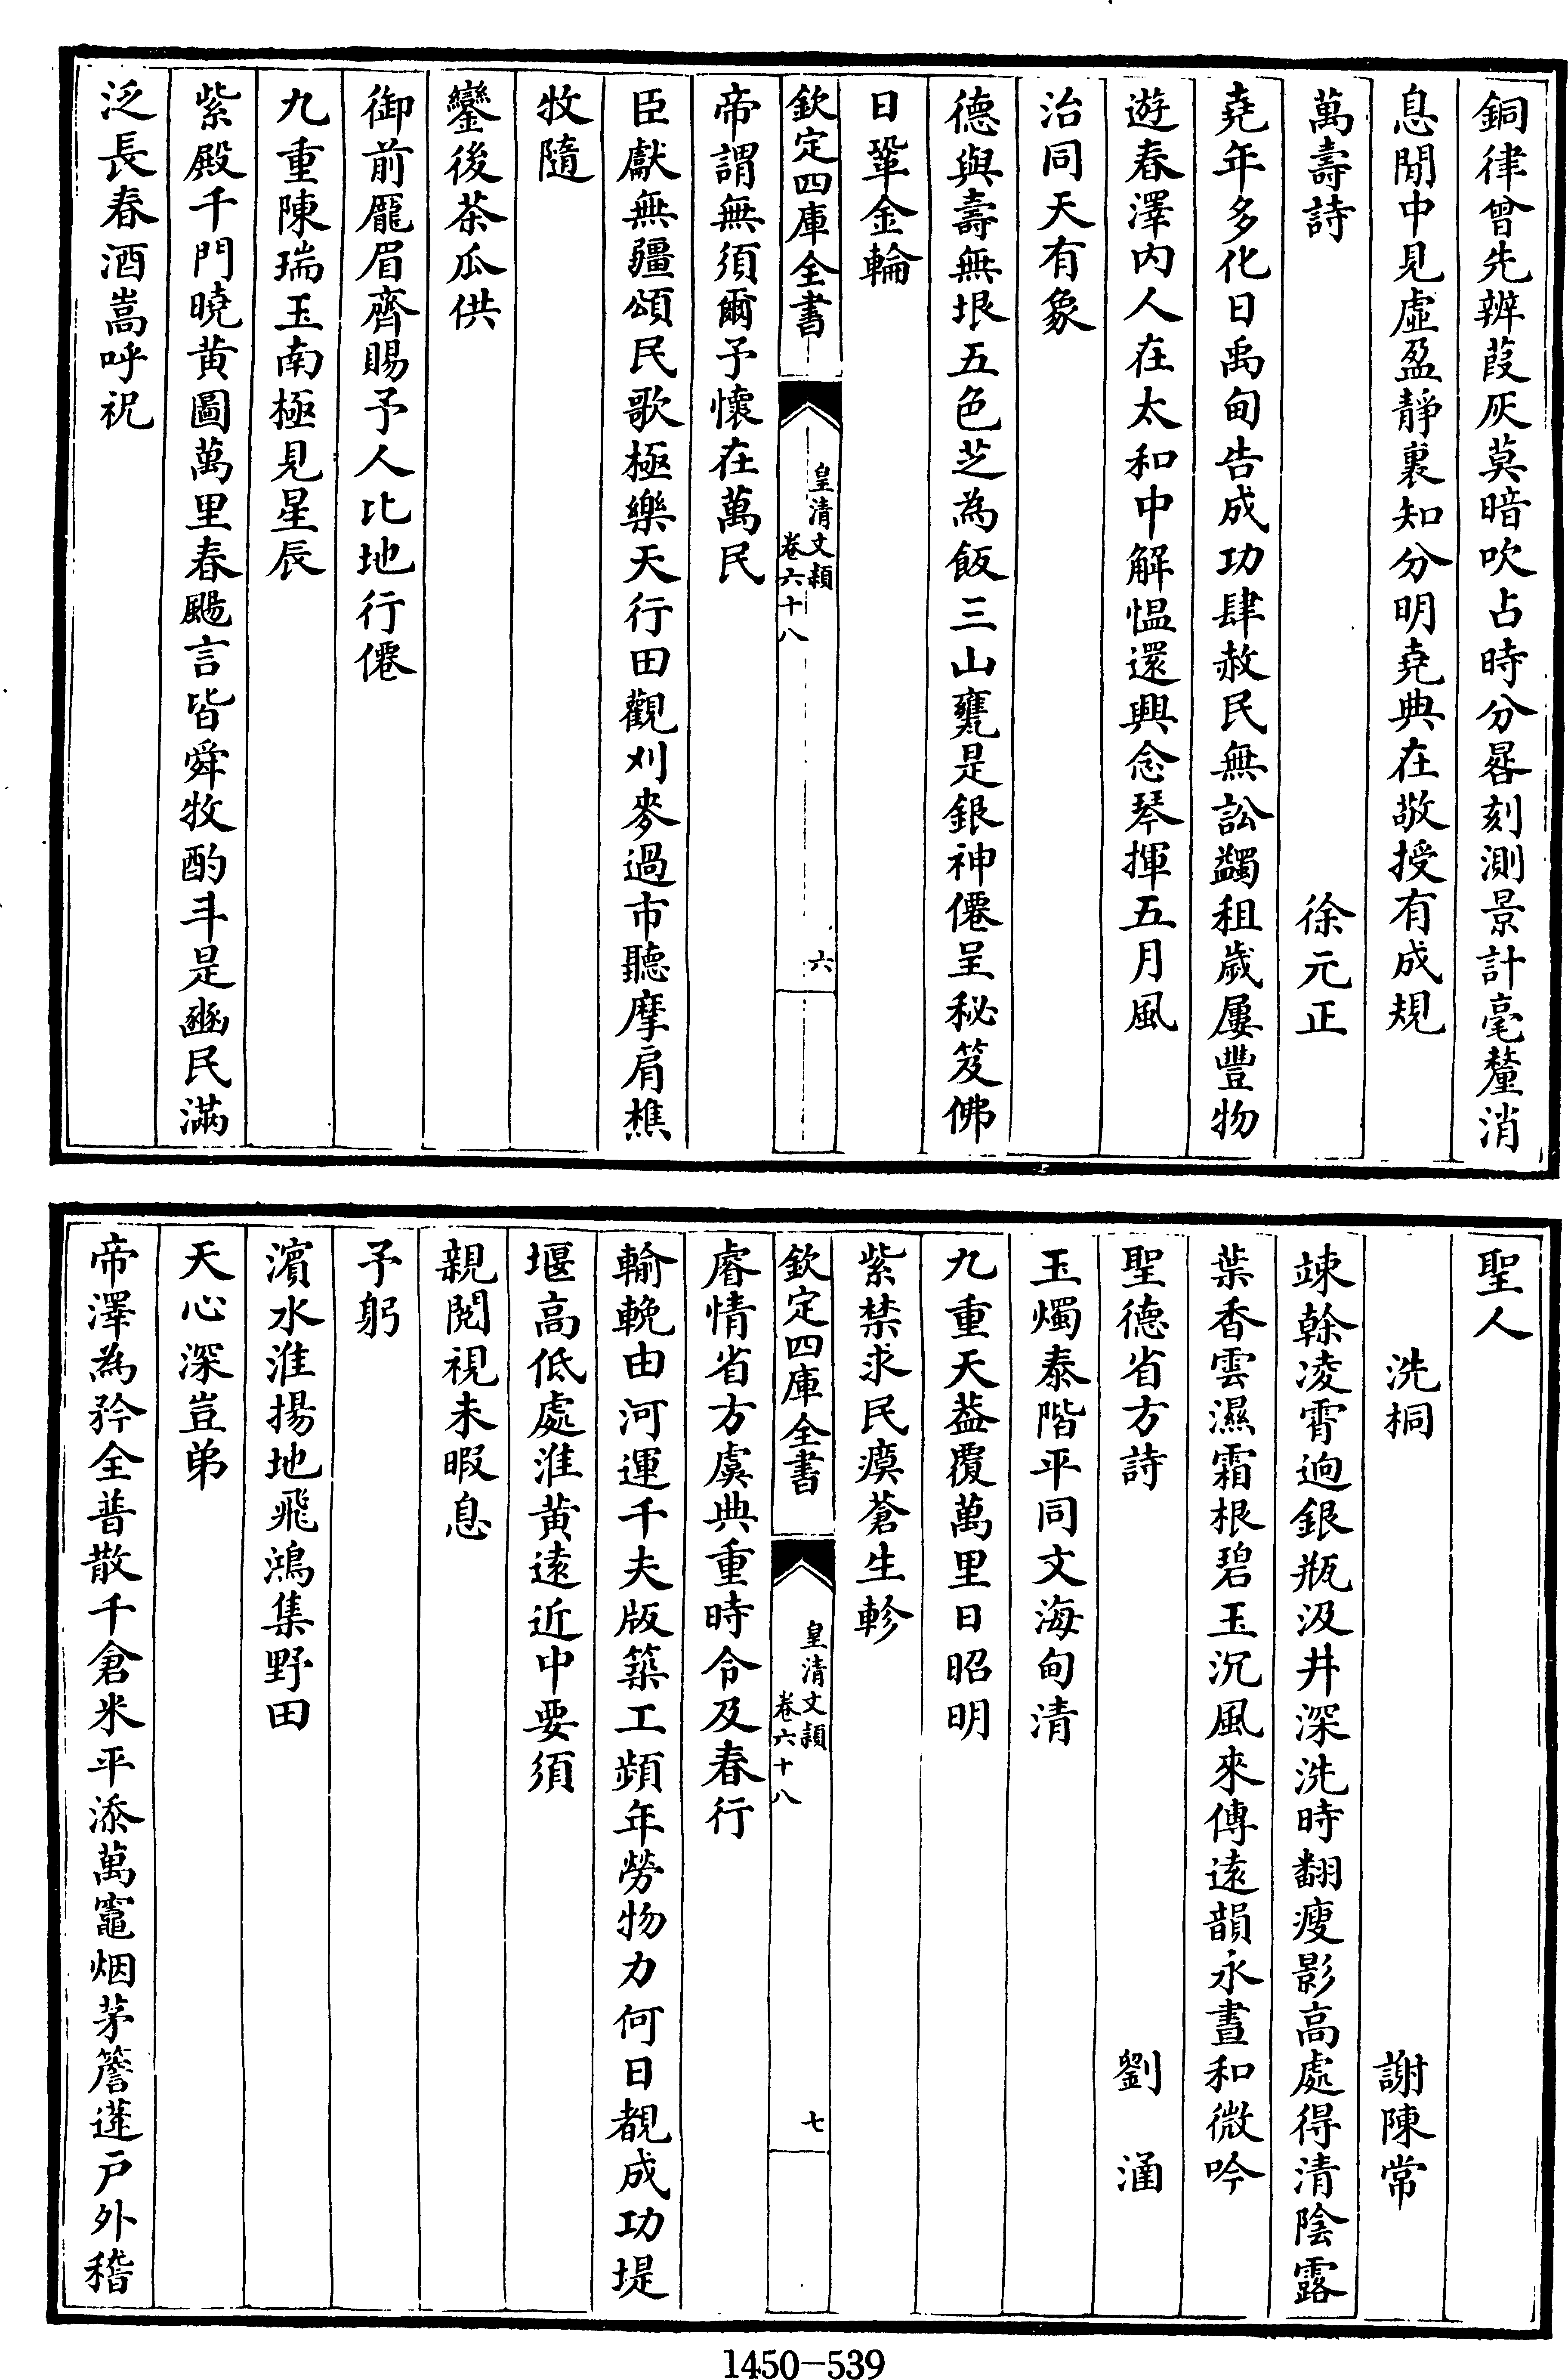 銅律曾先辨葭灰莫暗吹占時分晷刻測景計毫釐消
息閒中見虛盈靜裏知分明堯典在敬授有成規
萬壽詩 徐元正
堯年多化日禹甸告成功肆赦民無訟蠲租歲屢豐物
遊春澤内人在太和中解愠還興念琴揮五月風
治同天有象
德與壽無垠五色芝為飯三山甕是銀神僊呈秘笈佛
日鞏金輪
欽定四庫全書 皇清文穎 卷六十八 六
帝謂無須爾予懷在萬民
臣獻無疆頌民歌極樂天行田觀刈麥過市聽摩肩樵
牧隨
鑾後茶瓜供
御前龎眉齊賜予人比地行僊
九重陳瑞玉南極見星辰
紫殿千門曉黄圖萬里春颺言皆舜牧酌斗是豳民滿
泛長春酒嵩呼祝
聖人
洗桐 謝陳常
竦榦凌霄逈銀瓶汲井深洗時翻瘦影高處得清陰露
葉香雲濕霜根碧玉沉風來傳逺韻永晝和微吟
聖德省方詩 劉涵
玉燭泰階平同文海甸清
九重天葢覆萬里日昭明
紫禁求民瘼蒼生軫
欽定四庫全書 皇清文穎 卷六十八 七
睿情省方虞典重時令及春行
輸輓由河運千夫版築工頻年勞物力何日覩成功堤
堰高低處淮黄逺近中要須
親閱視未暇息
予躬
濵水淮揚地飛鴻集野田
天心深豈弟
帝澤為矜全普散千倉米平添萬竈烟茅簷蓬戸外稽
1450-539